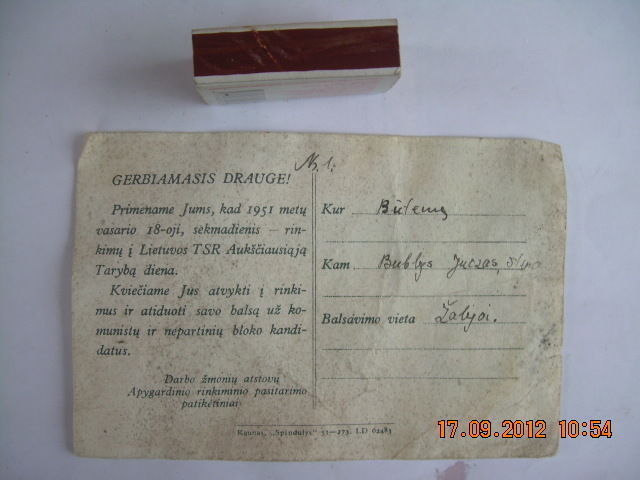 No 1.
GERBIAMASIS DRAUGE!
Primename Jums, kad 1951 metų
vasario 18-oji, sekmadienis — rin-
kimų į Lietuvos TSR Aukščiausiąją
Tarybą diena.
Kviečiame Jus atvykti į rinki-
mus ir atiduoti savo balsą už ko-
munistų ir nepartinių bloko kandi-
datus.
Darbo žmonių atstovų
Apygardinio rinkiminio pasitarimo
patikėtiniai
Kur
Kam Bublys Juozas,
Balsavimo vieta
Kaunas, „Spindulys“ 51—273. LD 62483
17.09.2012 10:54